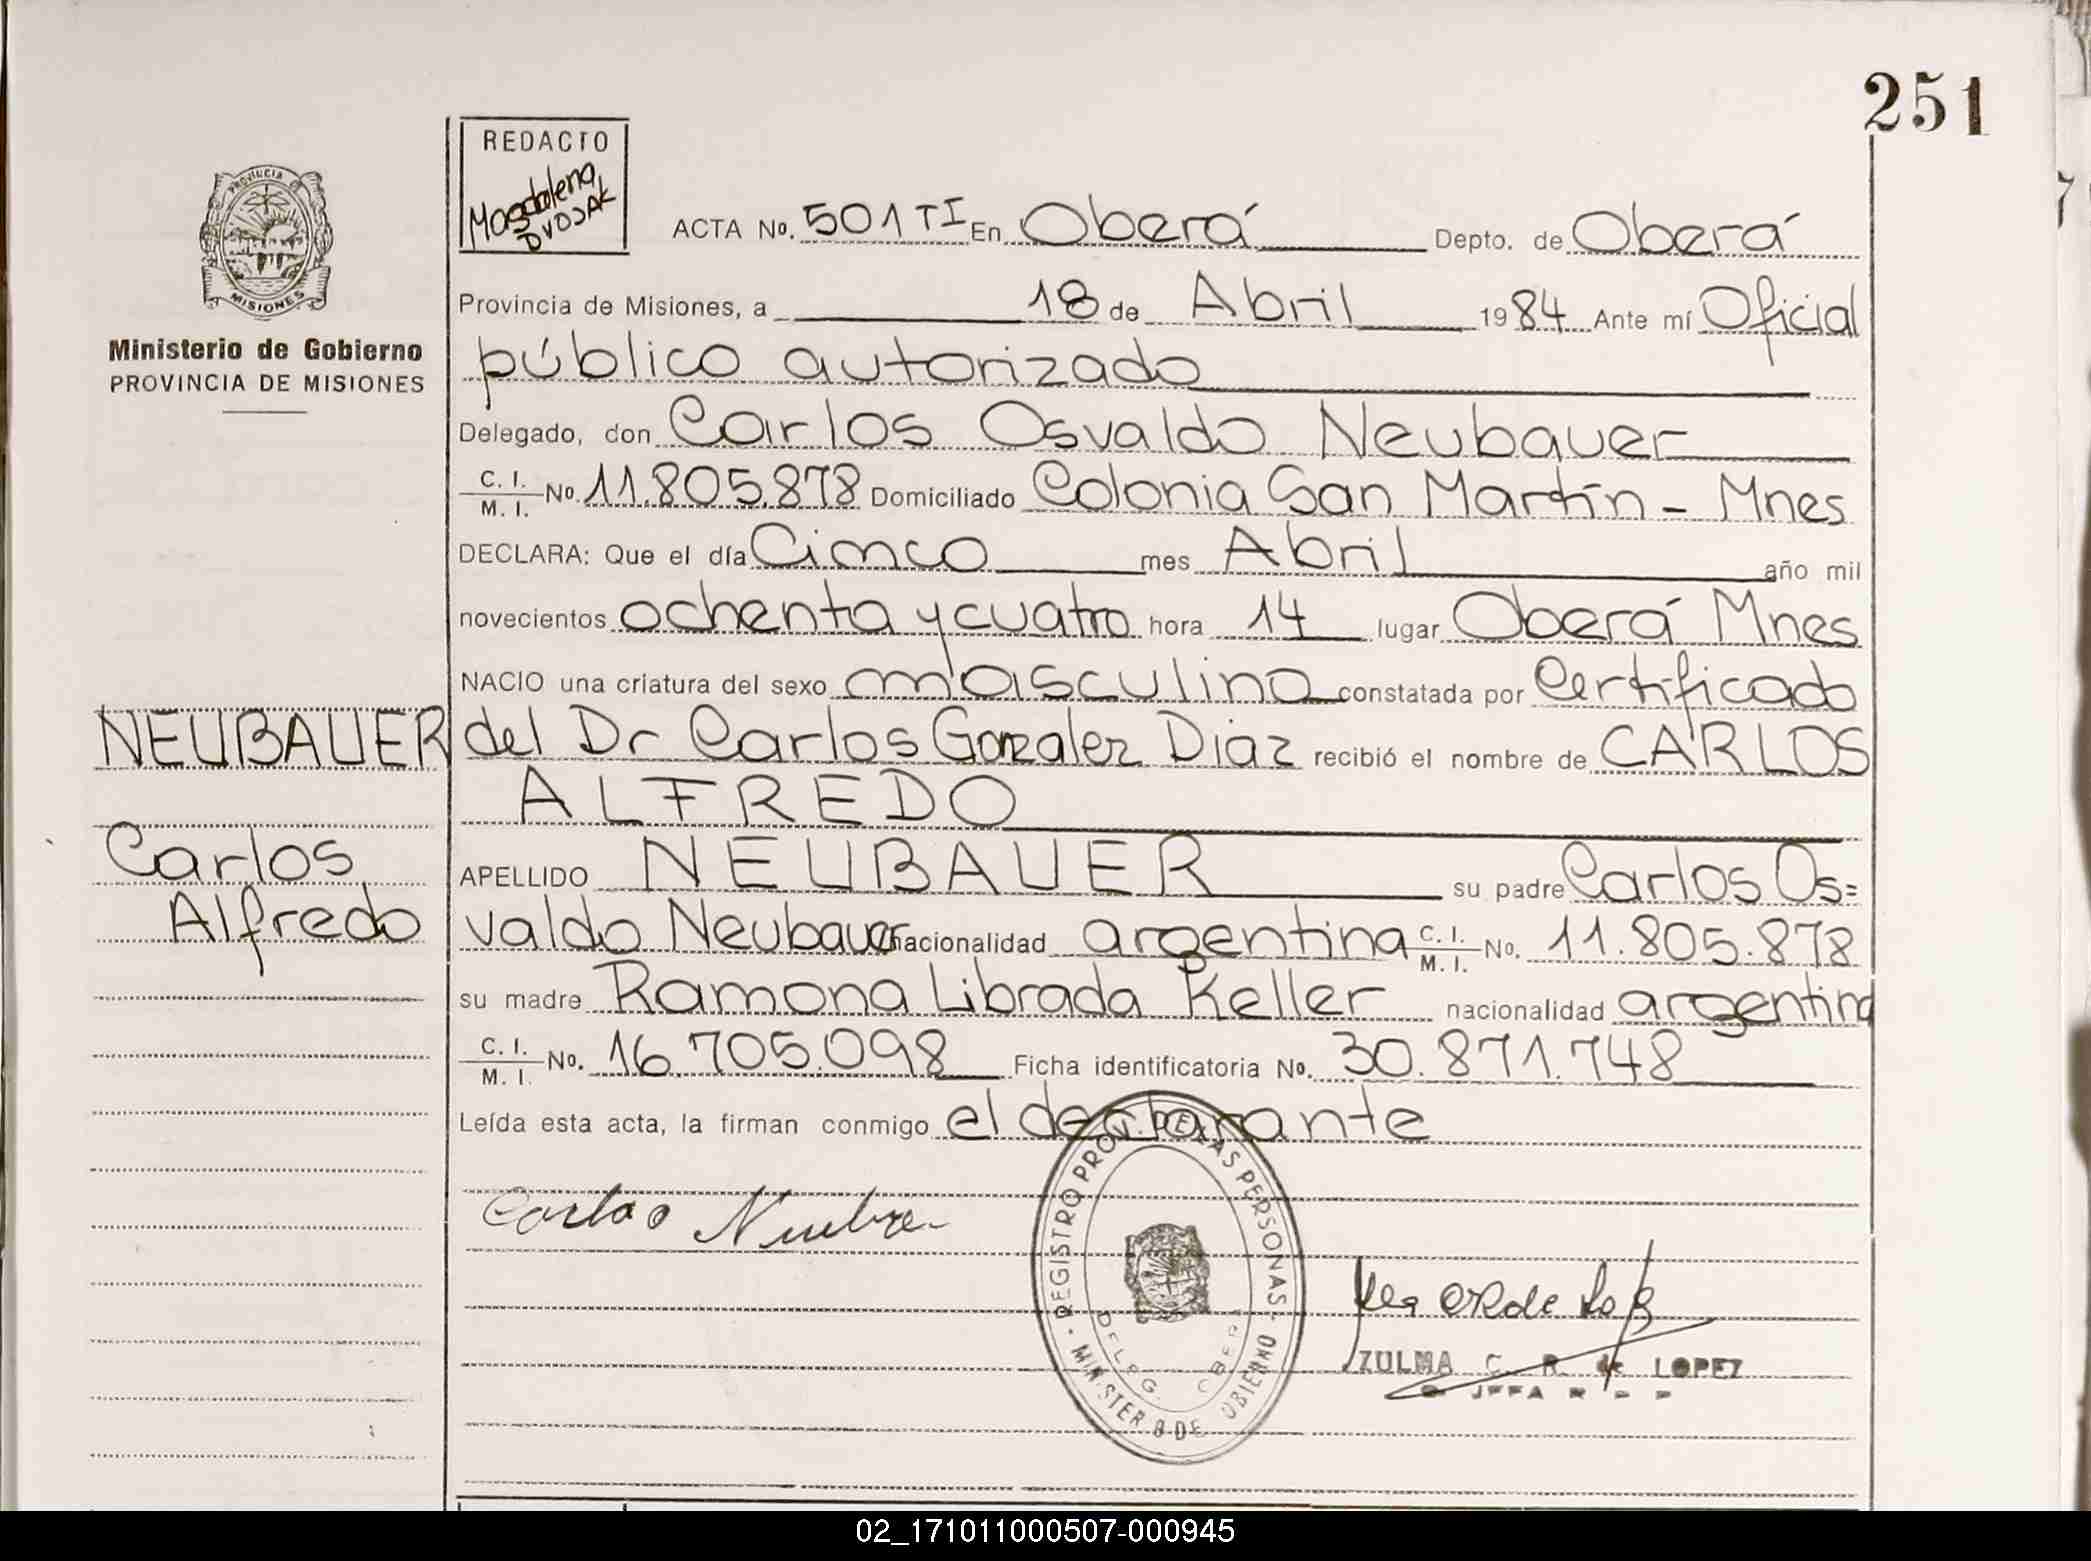 251
REDACTO
Magdalena
DVOJAK
PROVINCIA
MISIONES
Ministerio de Gobierno
PROVINCIA DE MISIONES
ACTA No. 501 TI En Oberá Depto. de Oberá
Provincia de Misiones, a 18 de Abril 1984 Ante mí Oficial
público autorizado
Delegado, don Carlos Osvaldo Neubauer
C. I. / M. I. No. 11.805.878 Domiciliado Colonia San Martín - Mnes
DECLARA: Que el día Cinco mes Abril año mil
novecientos ochenta y cuatro hora 14 lugar Oberá Mnes
NACIO una criatura del sexo masculino constatada por Certificado
NEUBAUER
del Dr Carlos Gonzalez Diaz recibió el nombre de CARLOS
ALFREDO
Carlos
Alfredo
APELLIDO NEUBAUER su padre Carlos Os=
valdo Neubauer nacionalidad argentina C. I. / M. I. No. 11.805.878
su madre Ramona Librada Keller nacionalidad argentina
C. I. / M. I. No. 16.705.098 Ficha identificatoria No. 30.871.748
Leída esta acta, la firman conmigo el declarante
REGISTRO PROV. DE LAS PERSONAS
DELEG. OBERA
MINISTERIO DE GOBIERNO
Carlos
ZULMA C. R. de LOPEZ
JEFA
02_171011000507-000945